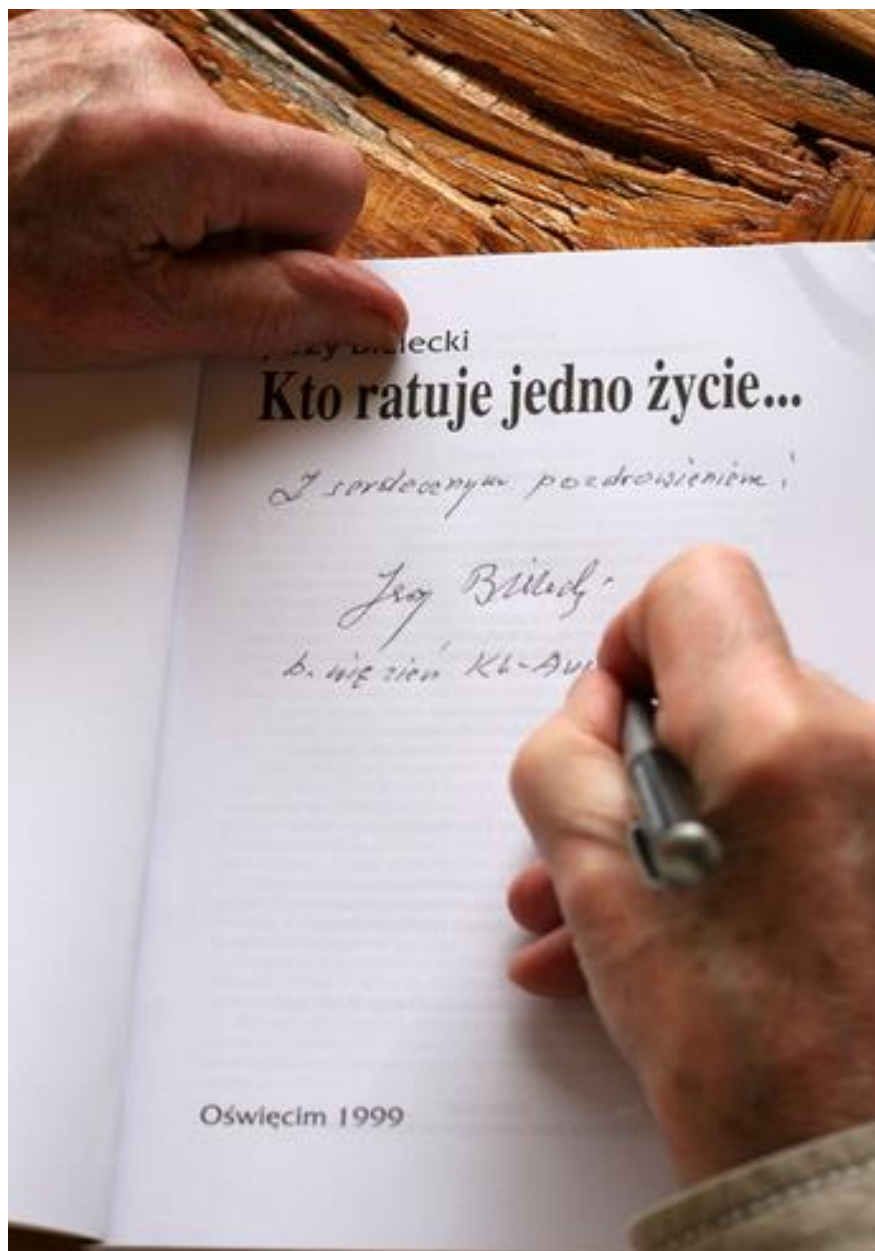 Jerzy Bielecki
Kto ratuje jedno życie...
Z serdecznym pozdrowieniem!
Jerzy Bielecki
b. więzień KL-Au
Oświęcim 1999